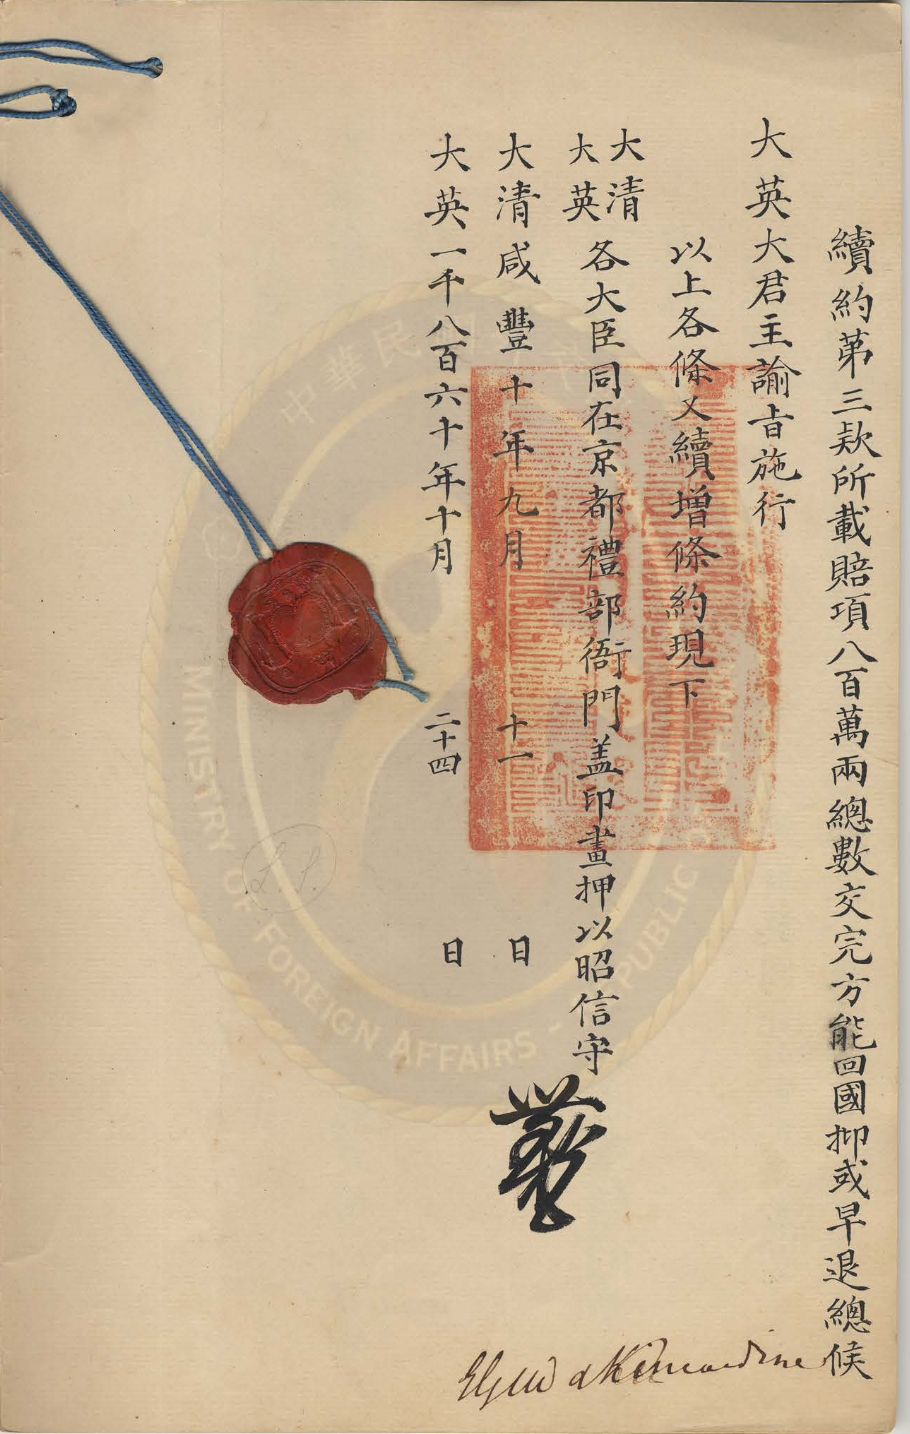 續約第三款所載賠項八百萬兩總數交完方能回國抑或早退總候
大英大君主諭旨施行
以上各條又續增條約現下
大清
大英
各大臣同在京都禮部衙門盖印畫押以昭信守
大清咸豐十年九月十一日
大英一千八百六十年十月二十四日
Elgin & Kincardine
L.S.
中華民
MINISTRY OF FOREIGN AFFAIRS - REPUBLIC O